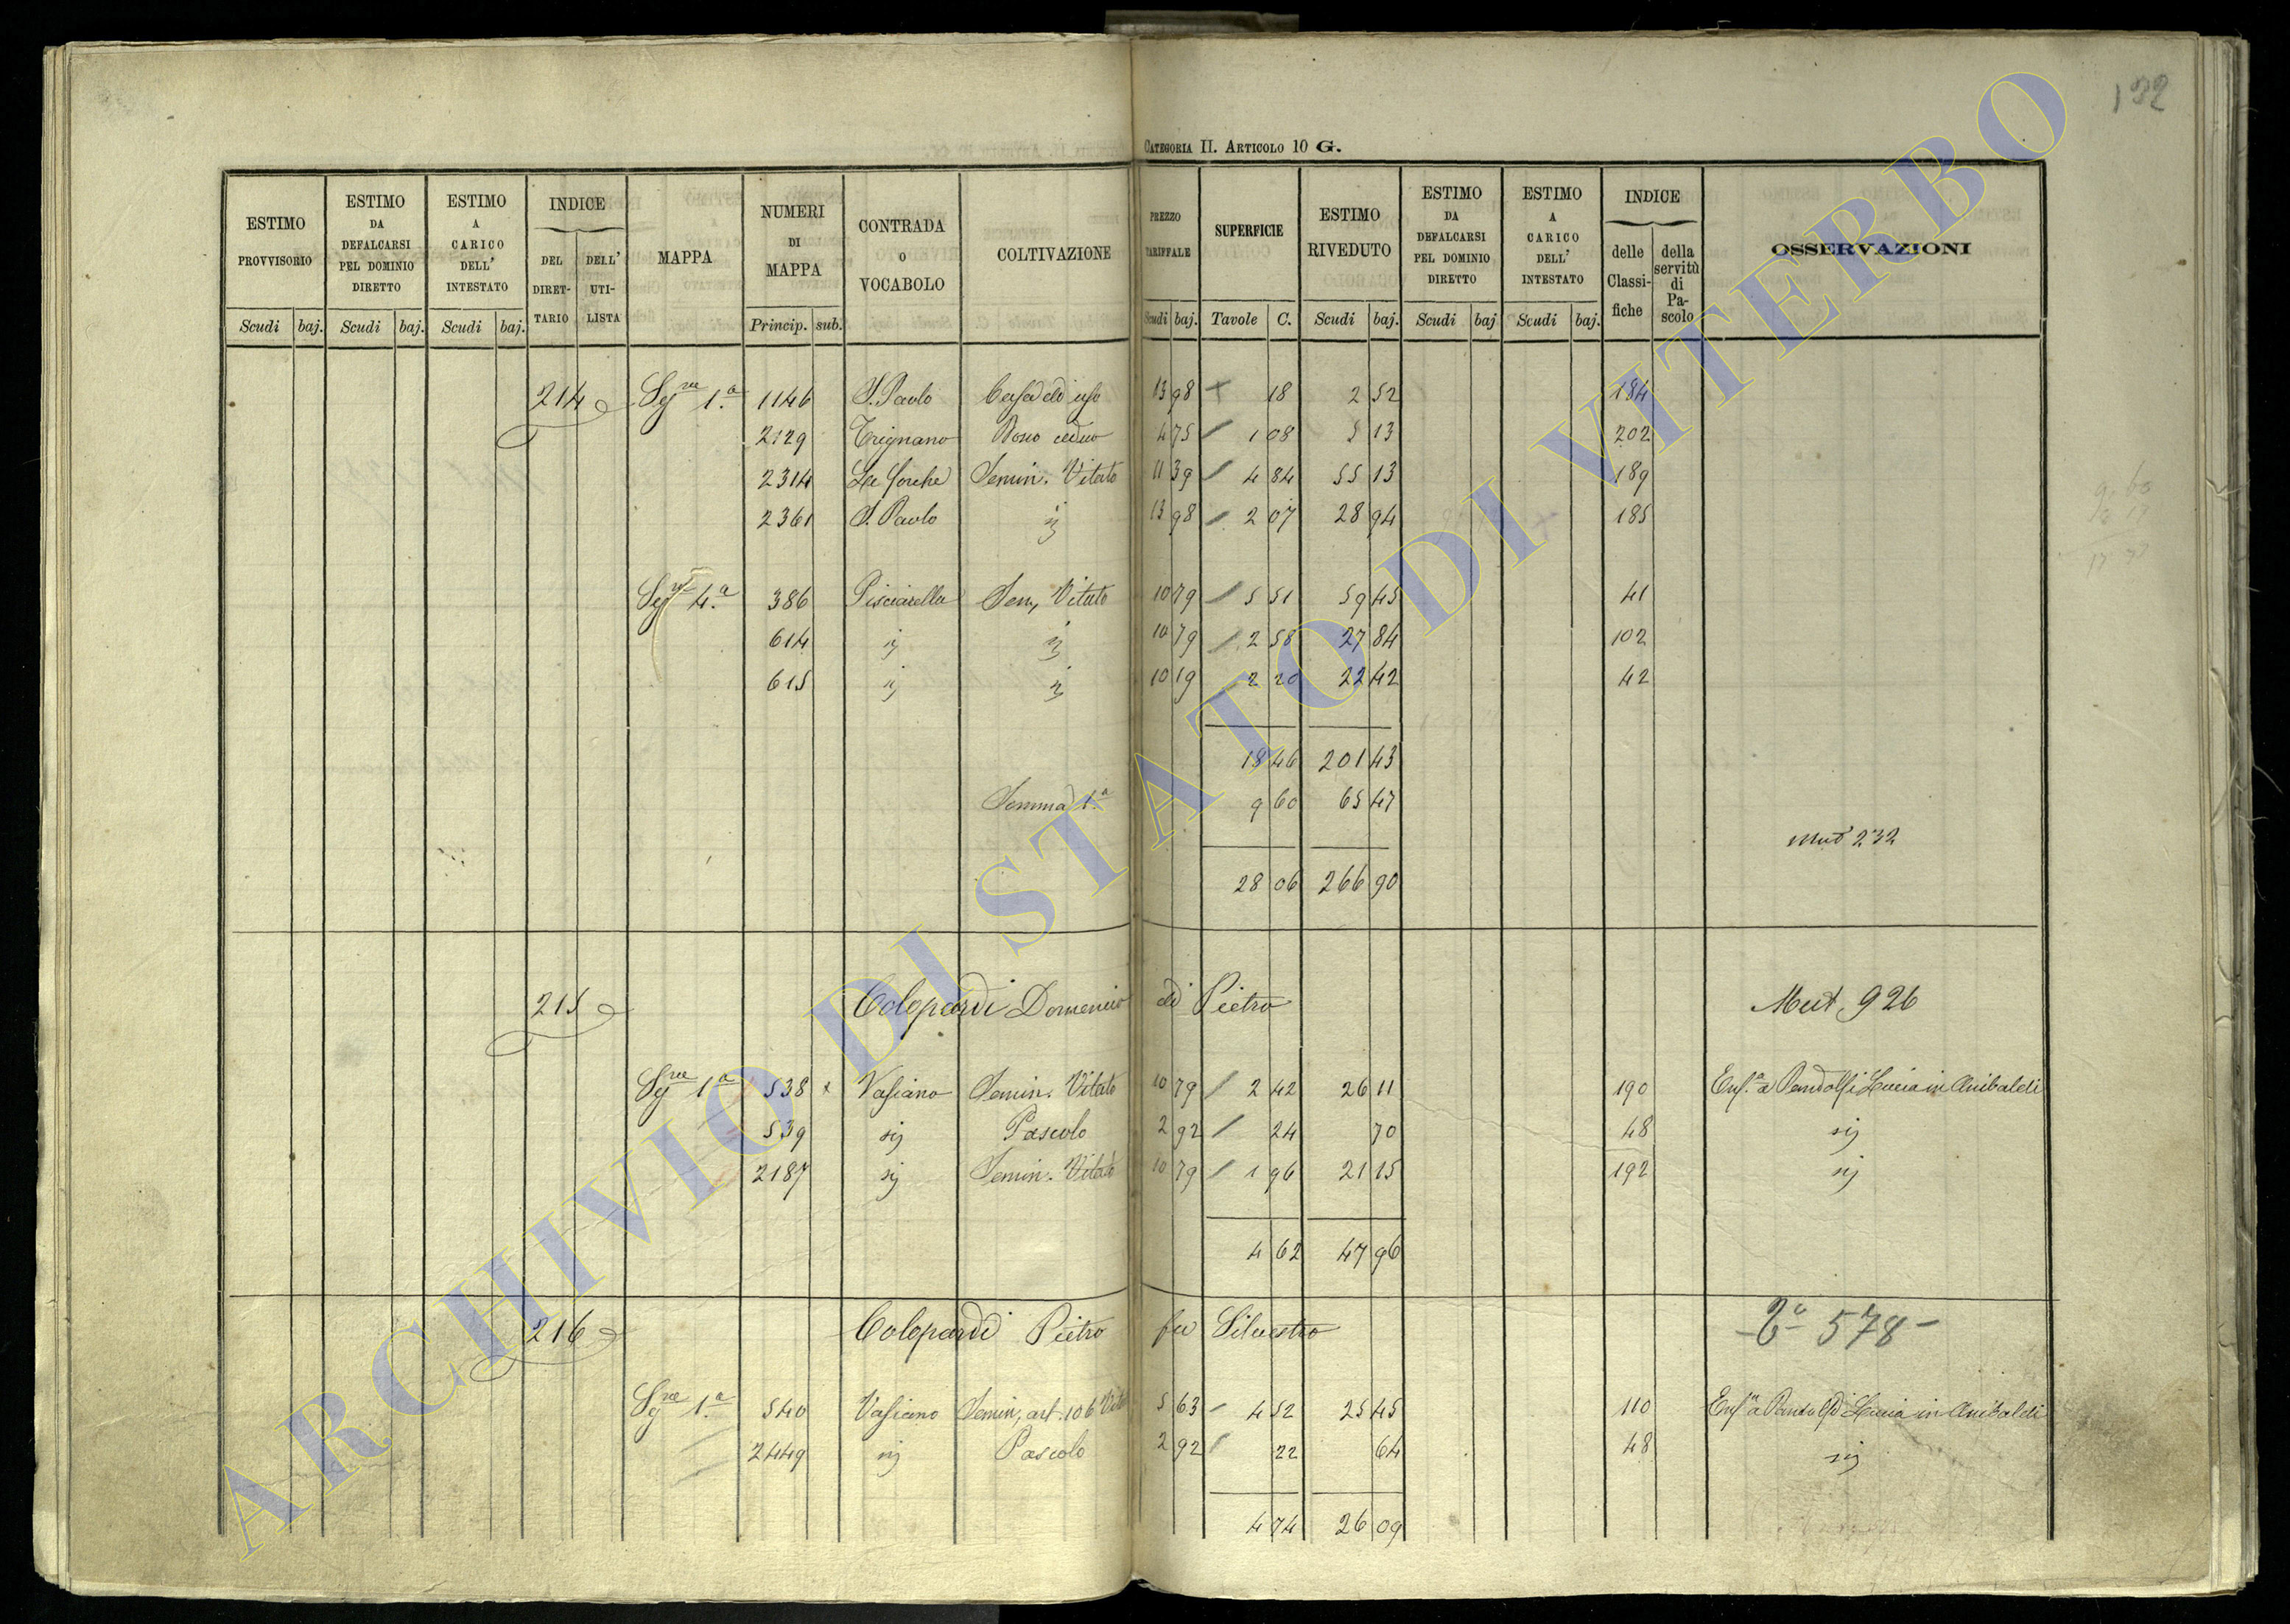 132
CATEGORIA II. ARTICOLO 10 G.
ESTIMO PROVVISORIO | ESTIMO DA DEFALCARSI PEL DOMINIO DIRETTO | ESTIMO A CARICO DELL' INTESTATO | INDICE DEL DIRETTARIO DELL' UTILISTA | MAPPA | NUMERI DI MAPPA | CONTRADA O VOCABOLO | COLTIVAZIONE | PREZZO TARIFFALE | SUPERFICIE | ESTIMO RIVEDUTO | ESTIMO DA DEFALCARSI PEL DOMINIO DIRETTO | ESTIMO A CARICO DELL' INTESTATO | INDICE delle Classifiche della servitù di Pascolo | OSSERVAZIONI
Scudi baj. Scudi baj. Scudi baj. Princip. sub. Scudi baj. Tavole C. Scudi baj. Scudi baj Scudi baj.
214 Sgne 1.a 1146 S. Paolo Casa di uso 13 98 18 2 52 184
2129 Trignano Bosco ceduo 4 75 1 08 5 13 202
2314 Le Forche Semin. Vitato 11 39 4 84 55 13 189
2361 S. Paolo ij 13 98 2 07 28 94 185
Sgne 4.a 386 Pisciarella Sem. Vitato 10 79 5 51 59 45 41
614 ij ij 10 79 2 58 27 84 102
615 ij ij 10 19 2 20 22 42 42
18 46 201 43
Somma 1.a 9 60 65 47
Mut 232
28 06 266 90
215 Colopardi Domenico di Pietro Mut. 926
Sgne 1.a 538 x Vasiano Semin. Vitato 10 79 2 42 26 11 190 Enf.a a Pandolfi Lucia in Anibaldi
539 ij Pascolo 2 92 24 70 48 ij
2187 ij Semin. Vitato 10 79 1 96 21 15 192 ij
4 62 47 96
216 Colopardi Pietro fu Silvestro 578
Sgne 1.a 540 Vasiano Semin. art. 106 5 63 4 52 25 45 110 Enf.a a Pandolfi Lucia in Anibaldi
2449 ij Pascolo 2 92 22 64 48 ij
4 74 26 09
ARCHIVIO DI STATO DI VITERBO